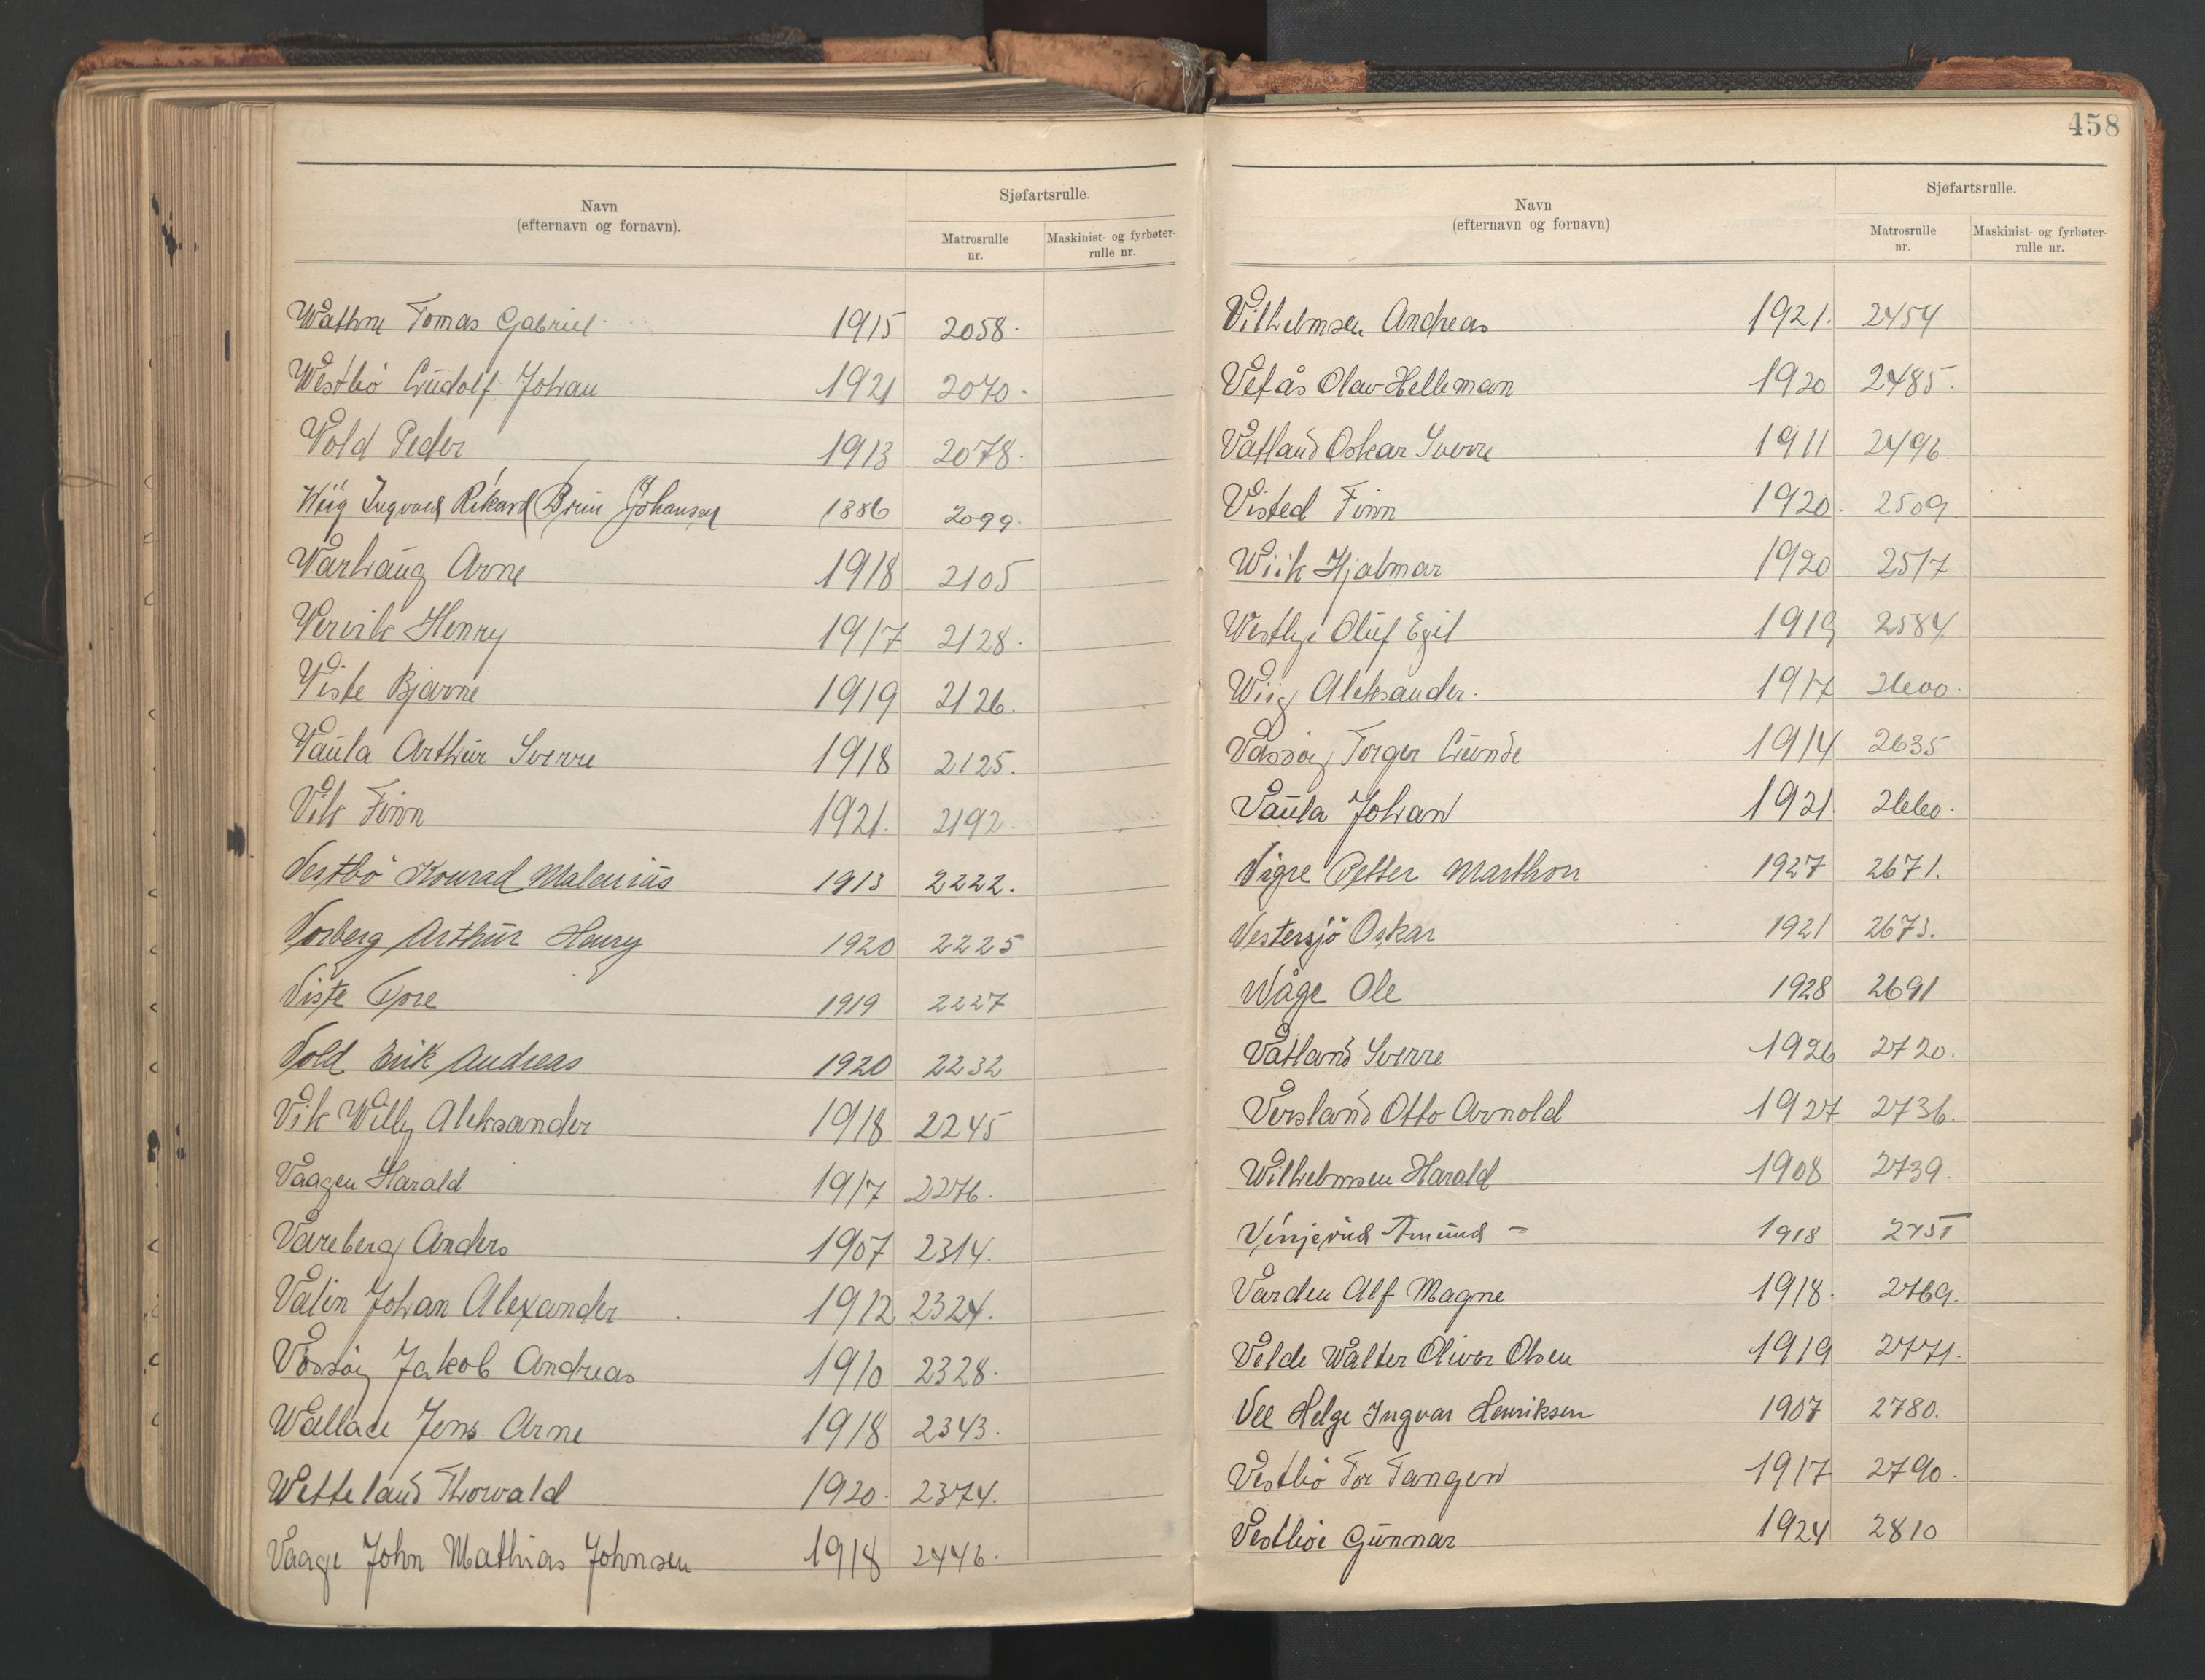 Navn
(efternavn og fornavn).
Sjøfartsrulle.
Matrosrulle
nr.
Maskinist- og fyrbøter-
rulle nr.
Wathne Tomas Gabriel 1915 2058.
Westbö Gudolf Johan 1921 2070.
Vold Peder 1913 2078.
Wiig Ingvald Rikard Brun Johansen 1886 2099.
Warhaug Arne 1918 2105
Vervik Henry 1917 2128.
Viste Bjarne 1919 2126.
Vaula Arthur Sverre 1918 2125.
Vik Finn 1921. 2192.
Vestbö Konrad Malenius 1913 2222.
Vorberg Arthur Harry 1920 2225
Viste Tore 1919 2227
Vold Erik Andreas 1920 2232
Vik Willy Aleksander 1918 2245
Vaagen Harald 1917 2276.
Vareberg Anders 1907 2314.
Valin Johan Alexander 1912 2324.
Vossøy Jakob Andreas 1910 2328.
Wallace Jens Arne 1918 2343.
Wetteland Thorvald 1920. 2374.
Vaage John Mathias Johnsen 1918 2446.
458
Navn
(efternavn og fornavn)
Sjøfartsrulle.
Matrosrulle
nr.
Maskinist- og fyrbøter-
rulle nr.
Vilhelmsen Andreas 1921. 2454
Vefås Olav Helleman 1920 2485.
Vatland Oskar Sverre 1911 2496
Visted Finn 1920. 2509.
Wiik Hjalmar 1920 2517
Westlye Oluf Egil 1919 2584
Wiig Aleksander. 1917 2600.
Vassøy Torger Gunde 1914 2635
Vaula Johan 1921. 2660.
Vigre Petter Marthon 1927 2671.
Vestersjö Oskar 1921 2673.
Wåge Ole 1928 2691
Vatland Sverre 1926 2720.
Versland Otto Arnold 1927 2736.
Wilhelmsen Harald 1908 2739.
Vinjerud Amund - 1918 2751
Varden Alf Magne 1918. 2769.
Velde Walter Oliver Olsen 1919 2771.
Vee Helge Ingvar Henriksen 1907 2780.
Vestbö Tor Tangen 1917 2790.
Vestbøe Gunnar 1924 2810